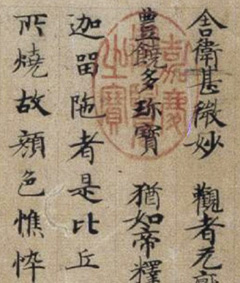 舍衛甚微妙 觀者无
豐饒多珍寶 猶如帝釋
迦留陁者是比丘
所燒故顏色憔悴
嘉慶
之寶